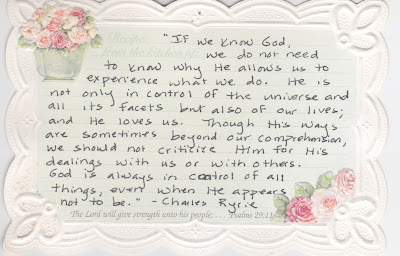 "If we know God,
we do not need
to know why He allows us to
experience what we do. He is
not only in control of the universe and
all its facets but also of our lives;
and He loves us. Though His ways
are sometimes beyond our comprehension,
we should not criticize Him for His
dealings with us or with others.
God is always in control of all
things, even when He appears
not to be." - Charles Ryrie
The Lord will give strength unto his people; . . . Psalms 29:11